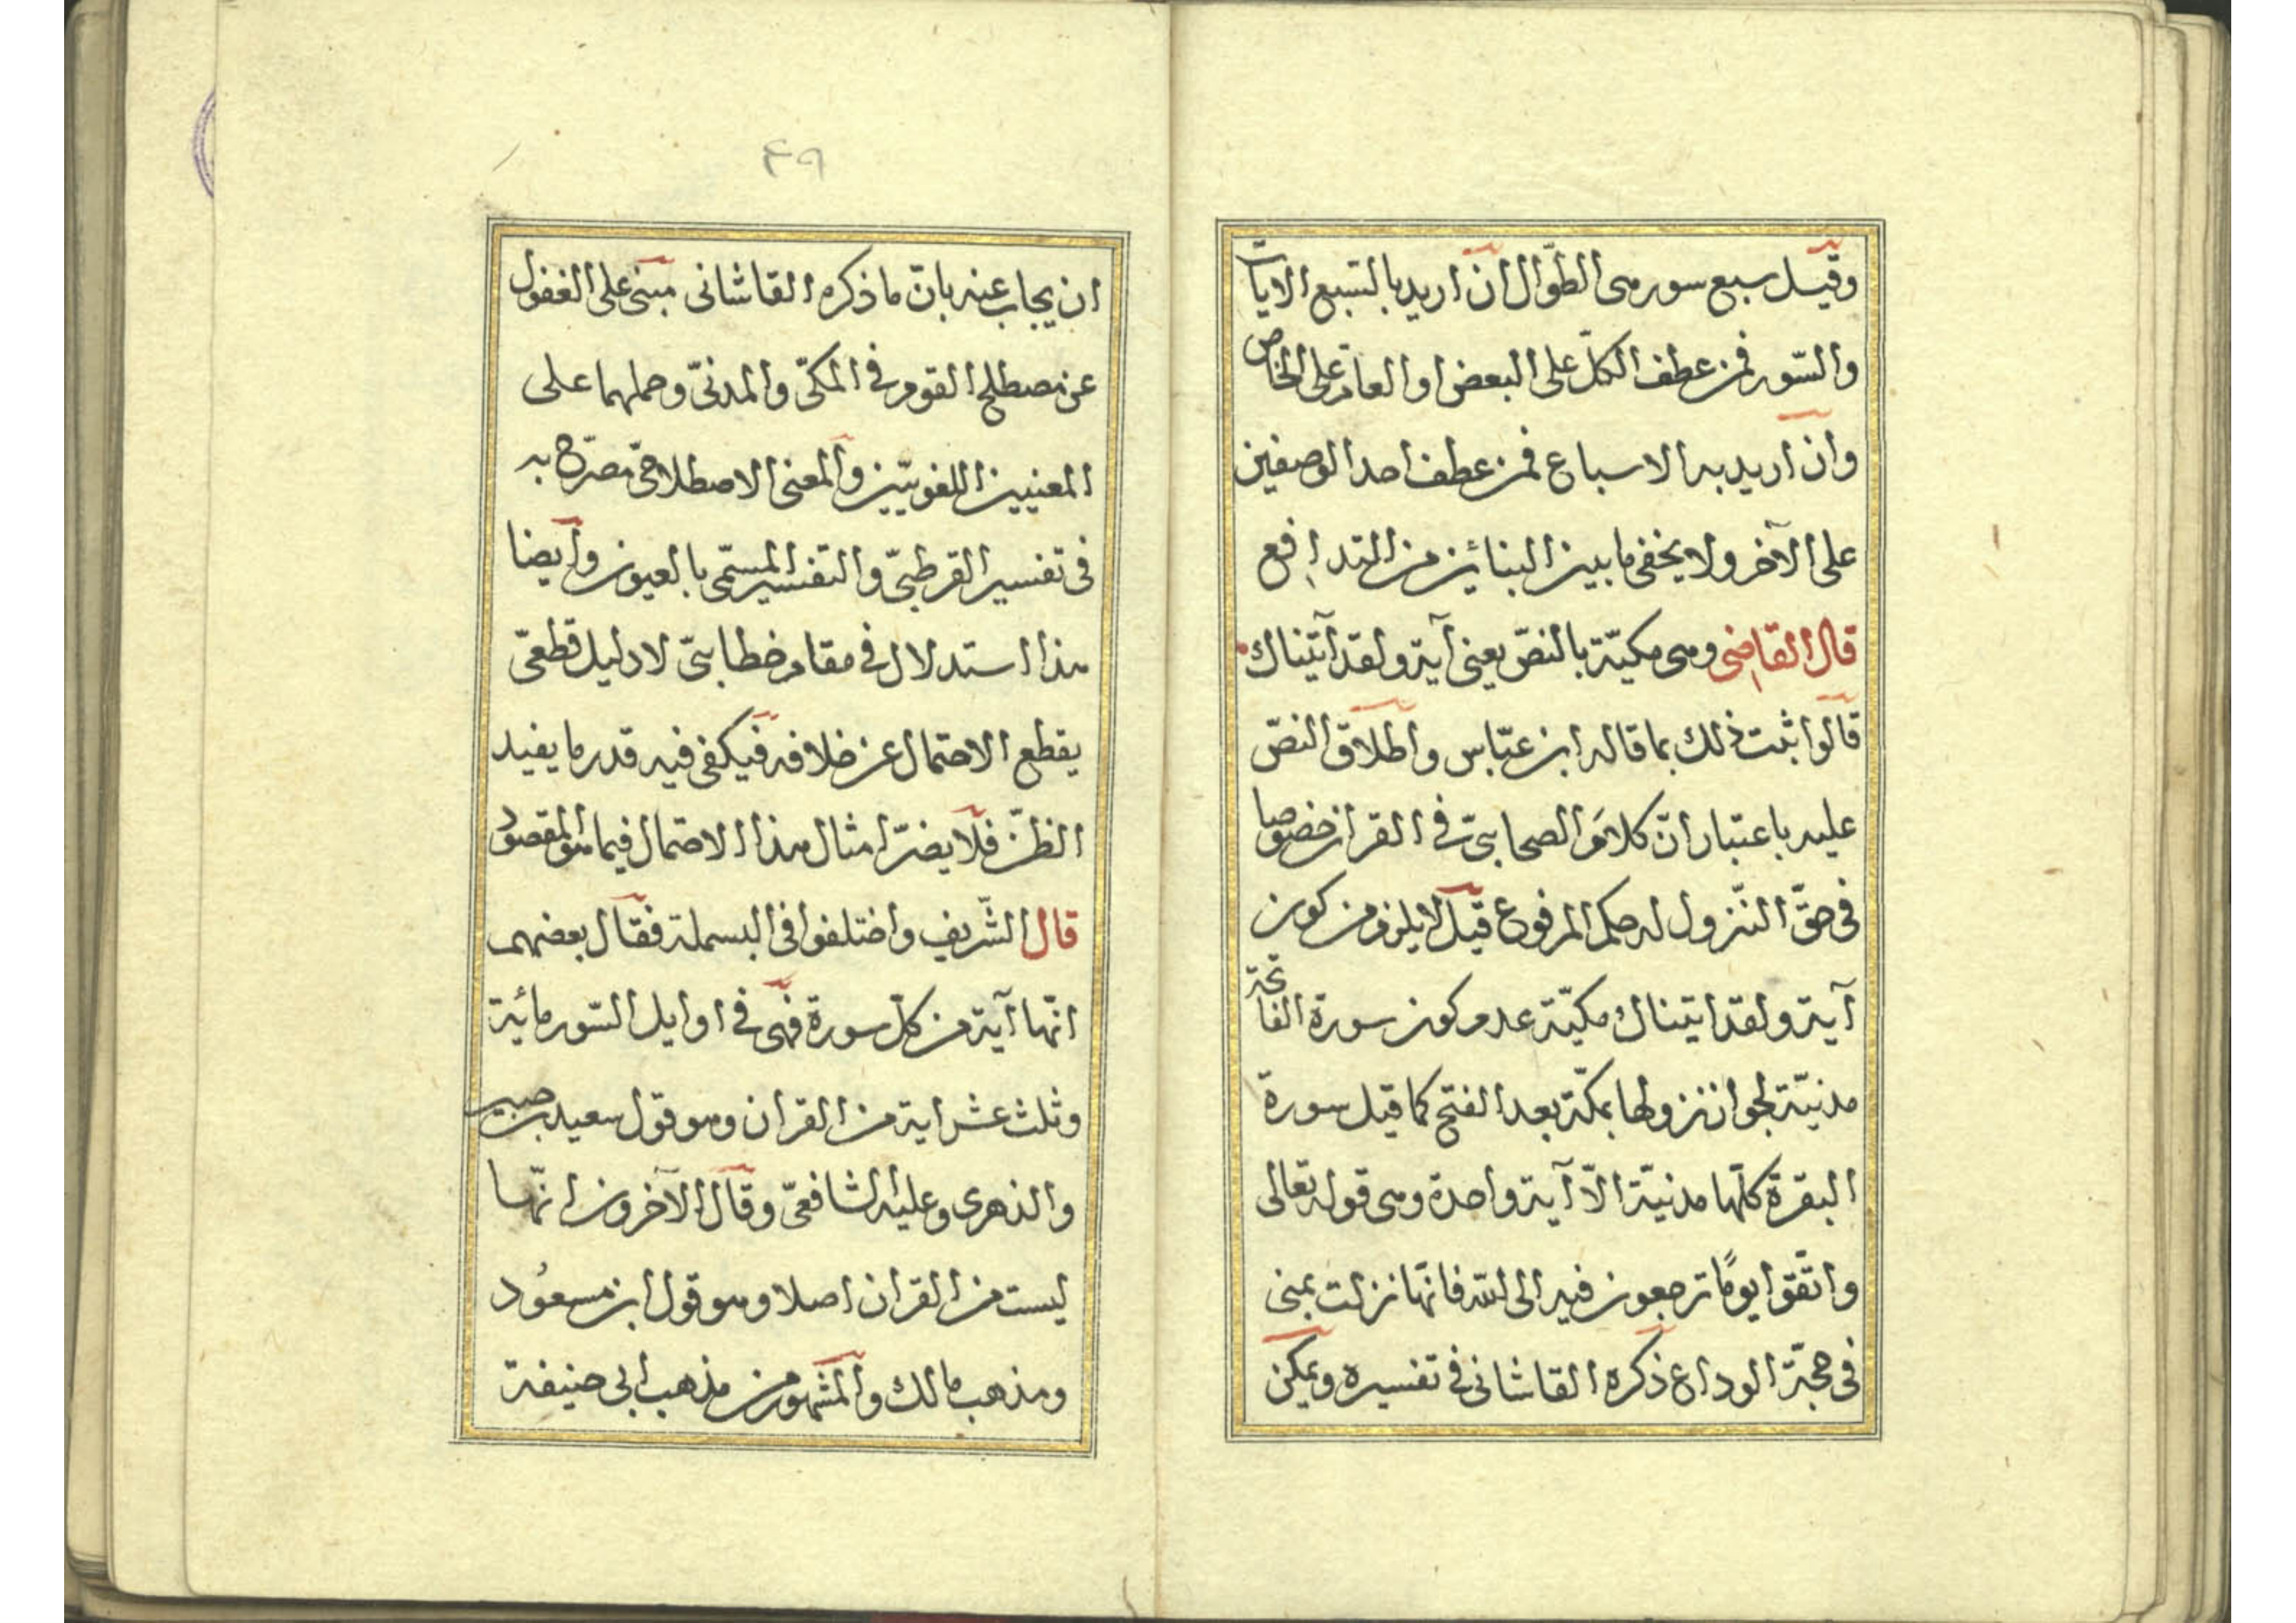 وقيل سبع سور هى الطّوال ان اريد بالسّبع الايات
والسّور فمن عطف الكلّ على البعض او العامّ على الخاص
وان اريد به الاسباع فمن عطف احد الوصفين
على الآخر ولا يخفى ما بين البنائين من التدافع
قال القاضى وهى مكيّة بالنصّ يعنى آية ولقد آتيناك
قالوا ثبت ذلك بما قاله ابن عبّاس واطلاق النصّ
عليه باعتبار انّ كلام الصحابىّ فى القران خصوصا
فى حقّ النّزول له حكم المرفوع قيل لا يلزم من كون
آية ولقد اتيناك مكيّة عدم كون سورة الفاتحة
مدنيّة لجواز نزولها بمكّة بعد الفتح كما قيل سورة
البقرة كلّها مدنيّة الاّ آية واحدة وهى قوله تعالى
واتّقوا يومًا ترجعون فيه الى الله فانّها نزلت بمنى
فى حجّة الوداع ذكره القاشانى فى تفسيره ويمكن
٤٩
ان يجاب عنه بانّ ما ذكره القاشانى مبنى على الغفول
عن مصطلح القوم فى المكىّ والمدنىّ وحملهما على
المعنيين اللغويّين والمعنى الاصطلاحىّ مصرّح به
فى تفسير القرطبىّ والتفسير المسمّى بالعيون وايضا
هذا استدلال فى مقام خطابىّ لا دليل قطعىّ
يقطع الاحتمال عن خلافه فيكفى فيه قدر ما يفيد
الظنّ فلا يضرّ امثال هذا الاحتمال فيما هو المقصود
قال الشّريف واختلفوا فى البسملة فقال بعضهم
انّها آية من كلّ سورة فهى فى اوايل السّور مائة
وثلث عشر اية من القران وهو قول سعيد بن جبير
والذهرى وعليه الشافعىّ وقال الآخرون انّها
ليست من القران اصلا وهو قول ابن مسعُود
ومذهب مالك والمشهور من مذهب ابى حنيفة